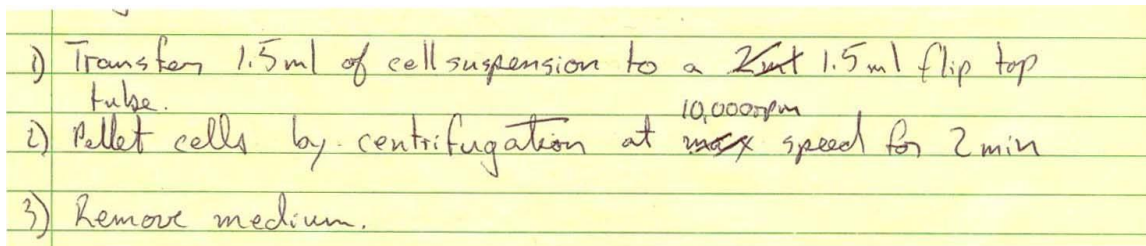 1) Transfer 1.5ml of cell suspension to a 2ml 1.5ml flip top
tube.
10,000rpm
2) Pellet cells by centrifugation at max speed for 2 min
3) Remove medium.